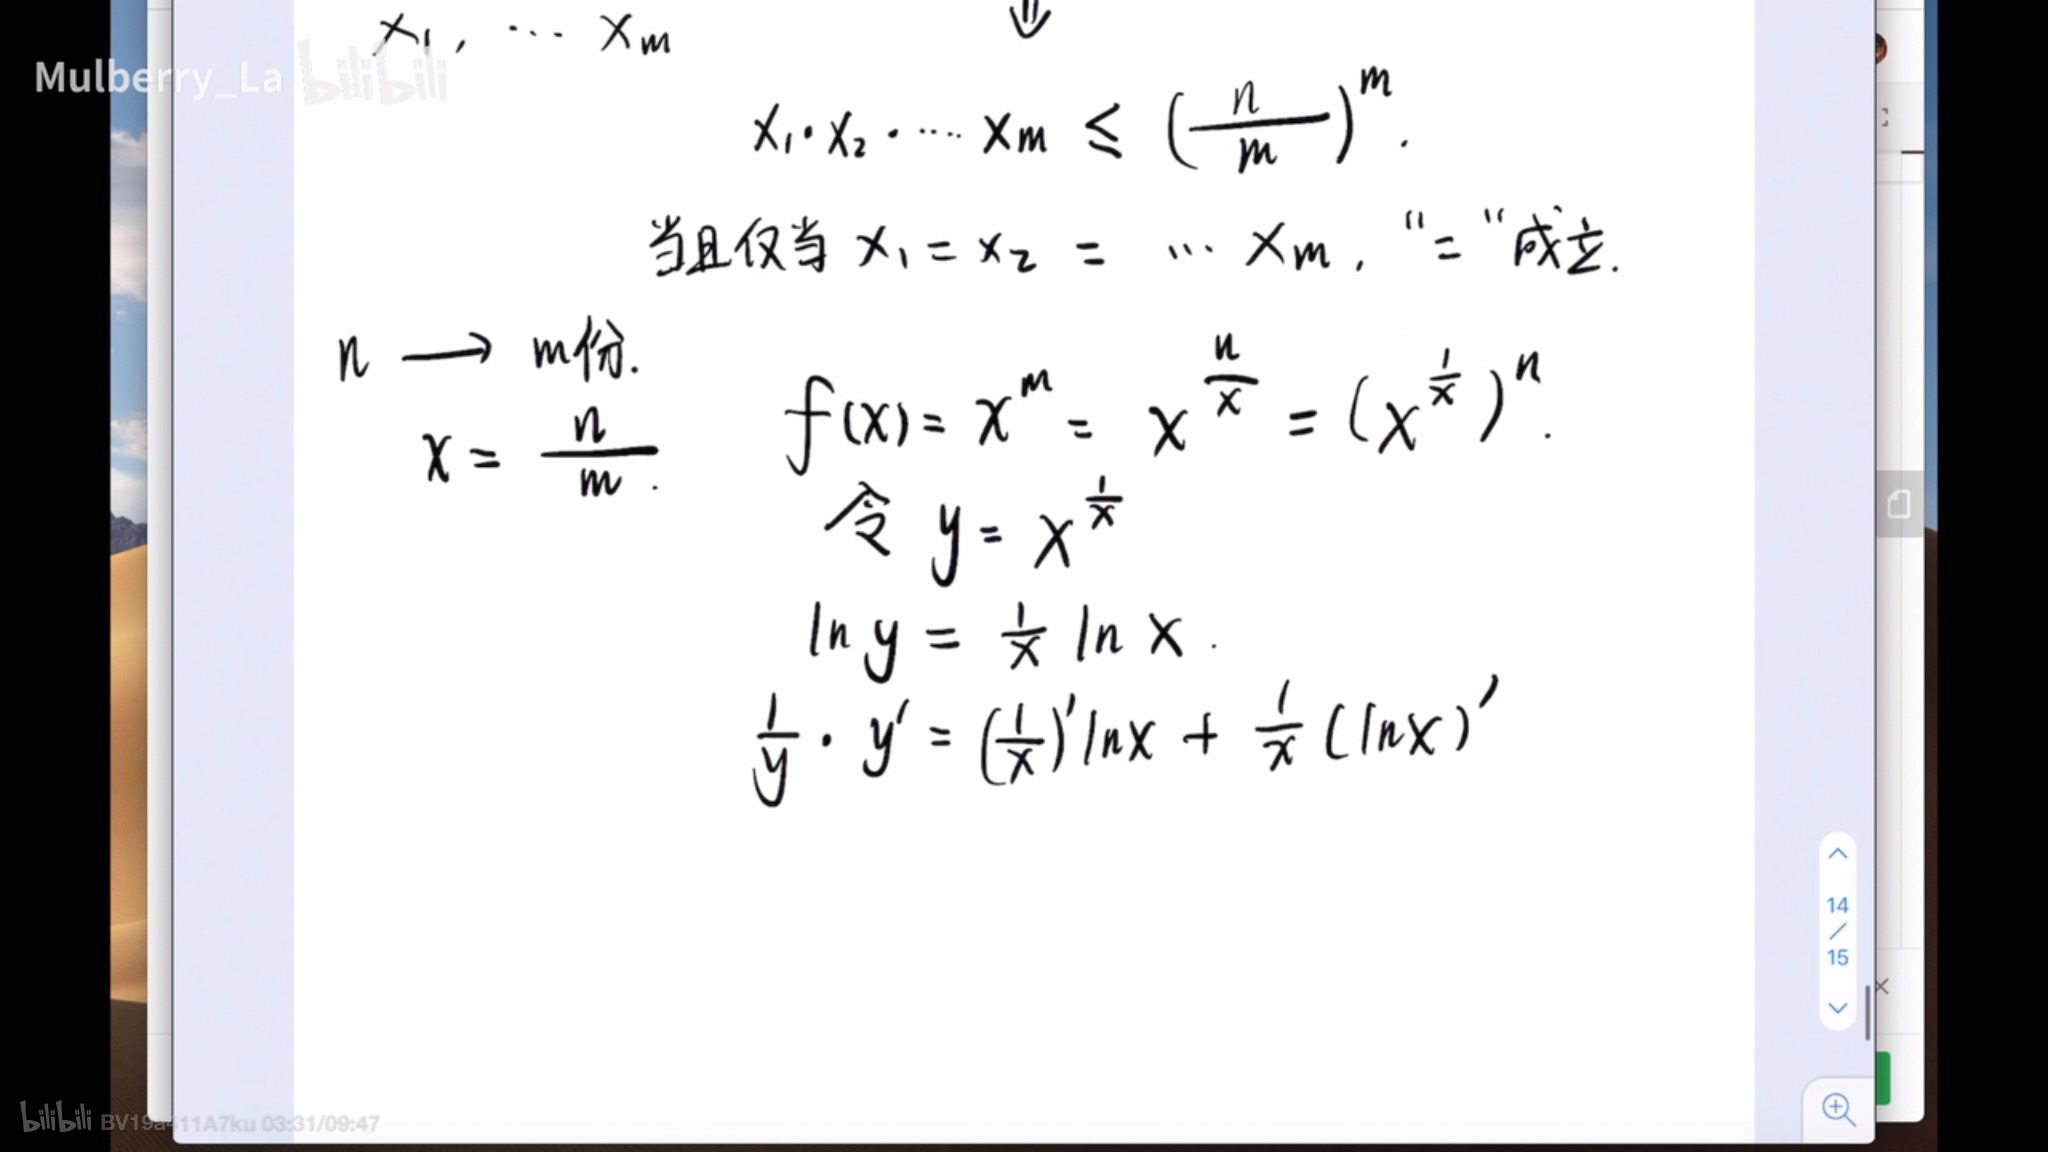 x₁, ⋯ xₘ
⇓
Mulberry_La bilibili
x₁·x₂·⋯ xₘ ≤ (n/m)^m.
当且仅当 x₁ = x₂ = ⋯ xₘ, "="成立.
n ⟶ m份.
x = n/m.
f(x) = x^m = x^(n/x) = (x^(1/x))^n.
令 y = x^(1/x)
ln y = 1/x ln x.
1/y · y′ = (1/x)′ lnx + 1/x (lnx)′
14
/
15
bilibili BV19a411A7ku 03:31/09:47